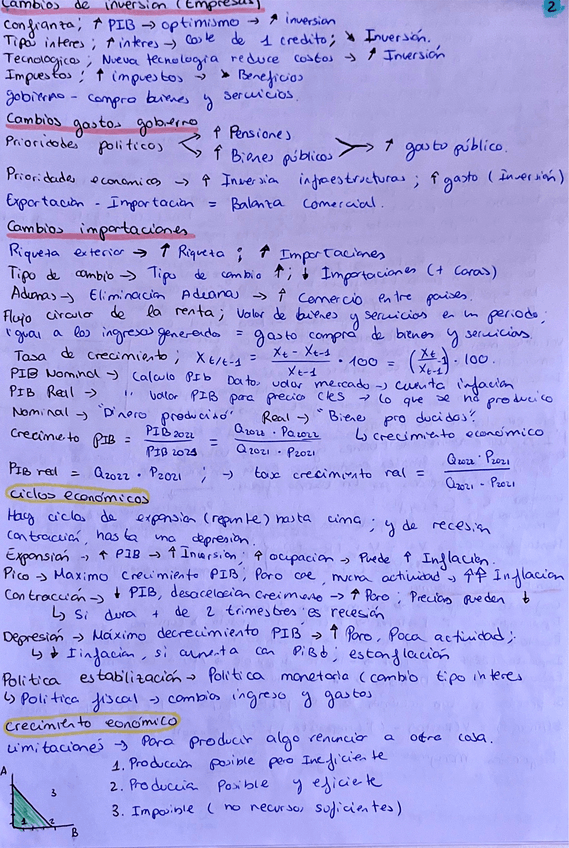 Cambios de inversion (Empresas)
2
Confianza; ↑ PIB → optimismo → ↑ inversion
Tipos interes; ↑ interes → Coste de 1 credito; ↘ Inversión.
Tecnologicos; Nueva tecnologia reduce costos → ↑ Inversión
Impuestos; ↑ impuestos → ↘ Beneficios
gobierno - compra bienes y servicios.
Cambios gastos gobierno
Prioridades politicos < ↑ Pensiones
↑ Bienes públicos > ↑ gasto público.
Prioridades economicos → ↑ Inversia infraestructuras; ↑ gasto (Inversión)
Exportación - Importación = Balanza comercial.
Cambios importaciones
Riqueta exterior → ↑ Riqueta; ↑ Importaciones
Tipo de cambio → Tipo de cambio ↑; ↓ Importaciones (+ caras)
Aduanas → Eliminación Aduanas → ↑ Comercio entre paises.
Flujo circulo de la renta; Valor de bienes y servicios en un periodo;
igual a los ingresos generados = gasto compra de bienes y servicios.
Tasa de crecimiento; X t/t-1 = (Xt - Xt-1) / Xt-1 · 100 = (Xt / Xt-1) · 100.
PIB Nominal → Calculo PIb Dato, valor mercado → cuenta inflacion
PIB Real → " Valor PIB para precio ctes → lo que se ha producico
Nominal → "Dinero producido" Real → "Bienes producidos".
Crecimeto PIB = PIB 2022 / PIB 2021 = Q2022 · P2022 / Q2021 · P2021 ↳ crecimiento económico
PIB real = Q2022 · P2021 ; → tasa crecimiento real = Q2022 · P2021 / Q2021 · P2021
Ciclos económicos
Hay ciclos de expansion (repunte) hasta cima; y de recesión
contracción, hasta una depresión.
Expansión → ↑ PIB → ↑ Inversion; ↑ ocupacion → Puede ↑ Inflación.
Pico → Maximo crecimiento PIB; Paro cae, nueva actividad → ↑↑ Inflación
Contracción → ↓ PIB, desaceleración → ↑ Paro; Precios pueden ↓
↳ Si dura + de 2 trimestres es recesión
Depresión → Máximo decrecimiento PIB → ↑ Paro, Poca actividad;
↳ ↓ Inflación, si aumenta con PiB↓; estanflación
Politica estabilización → Politica monetaria (cambio tipo interes
↳ Politica fiscal → cambios ingreso y gastos
Crecimiento económico
Limitaciones → Para producir algo renunciar a otra cosa.
1. Producción posible pero Ineficiente
2. Produccia Posible y eficiete
3. Imposible (no recursos suficientes)
A
3
1
2
B